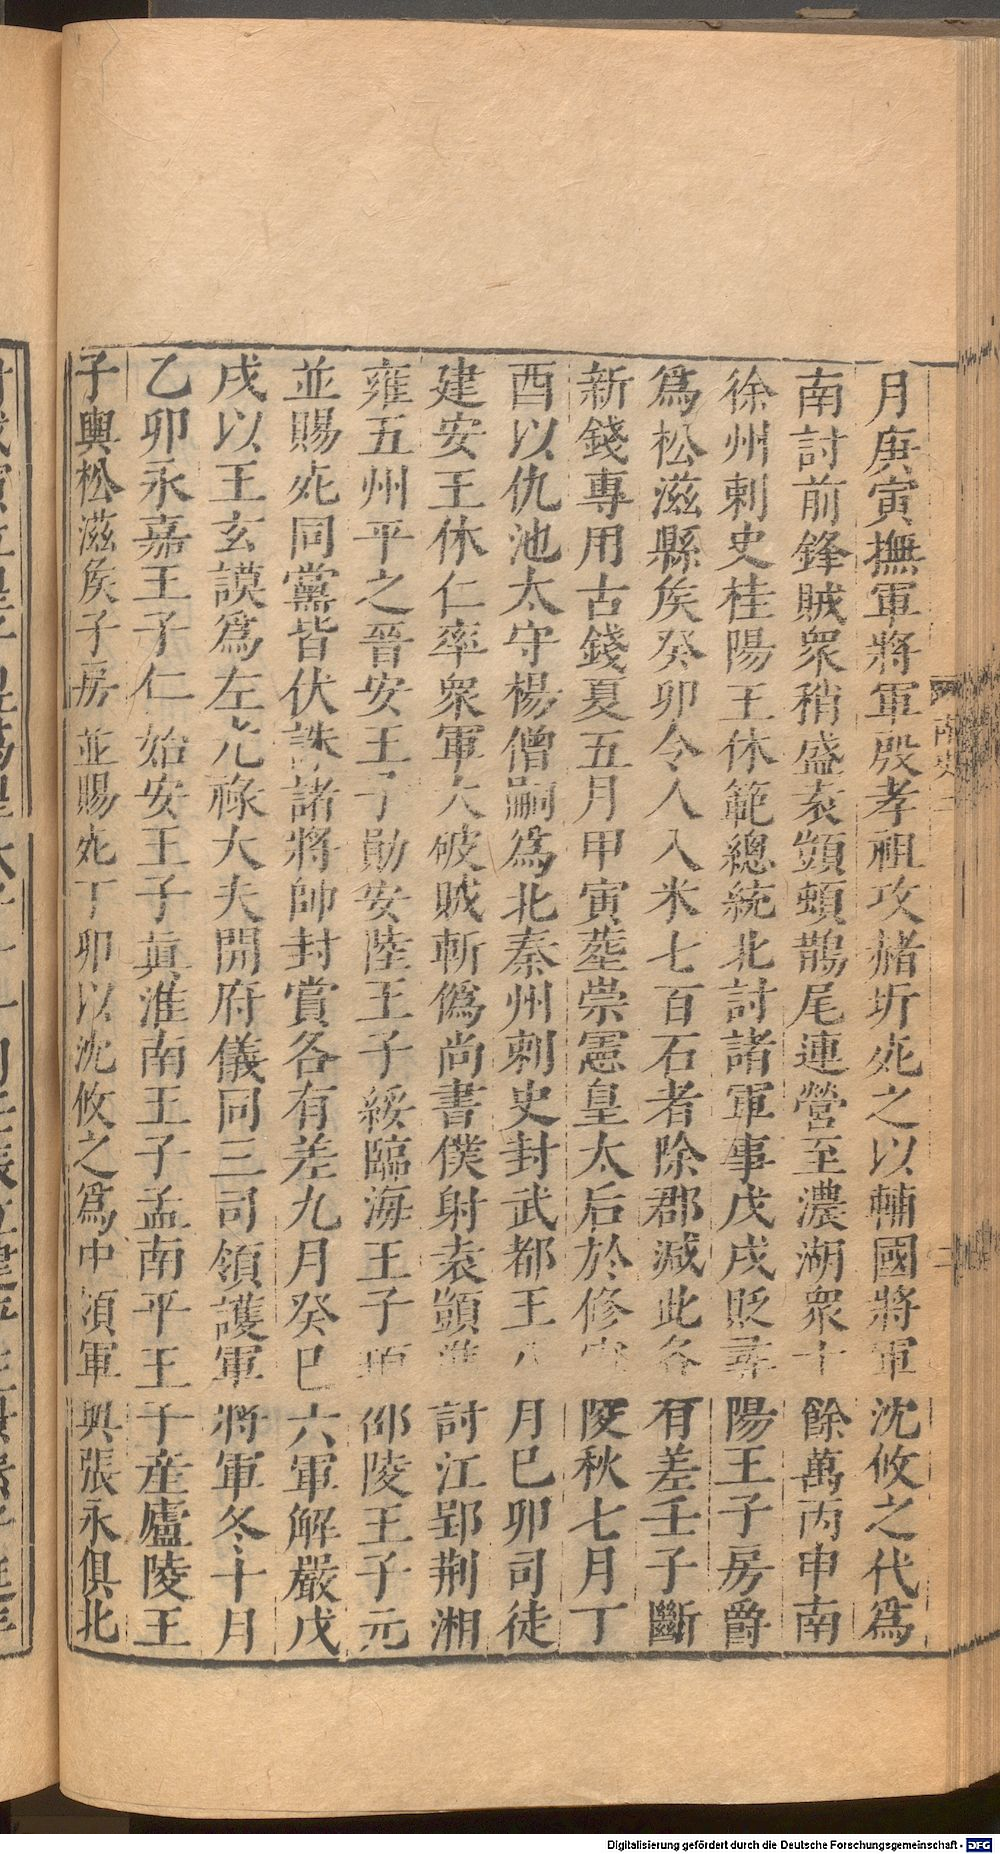 月庚寅撫軍將軍殷孝祖攻赭圻死之以輔國將軍沈攸之代爲
南討前鋒賊衆稍盛袁顗頓鵲尾連營至濃湖衆十餘萬丙申南
徐州刺史桂陽王休範總統北討諸軍事戊戌貶尋陽王子房爵
爲松滋縣矦癸卯令人入米七百石者除郡减此各有差壬子斷
新錢專用古錢夏五月甲寅葬崇憲皇太后於修寧陵秋七月丁
酉以仇池太守楊僧嗣爲北秦州刺史封武都王八月巳卯司徒
建安王休仁率衆軍大破賊斬僞尚書僕射袁顗進討江郢荆湘
雍五州平之晉安王子勛安陸王子綏臨海王子頊邵陵王子元
並賜死同黨皆伏誅諸將帥封賞各有差九月癸巳六軍解嚴戊
戌以王玄謨爲左光祿大夫開府儀同三司領護軍將軍冬十月
乙卯永嘉王子仁始安王子眞淮南王子孟南平王子産廬陵王
子輿松滋矦子房並賜死丁卯以沈攸之爲中領軍與張永俱北
南史二
二
Digitalisierung gefördert durch die Deutsche Forschungsgemeinschaft - DFG